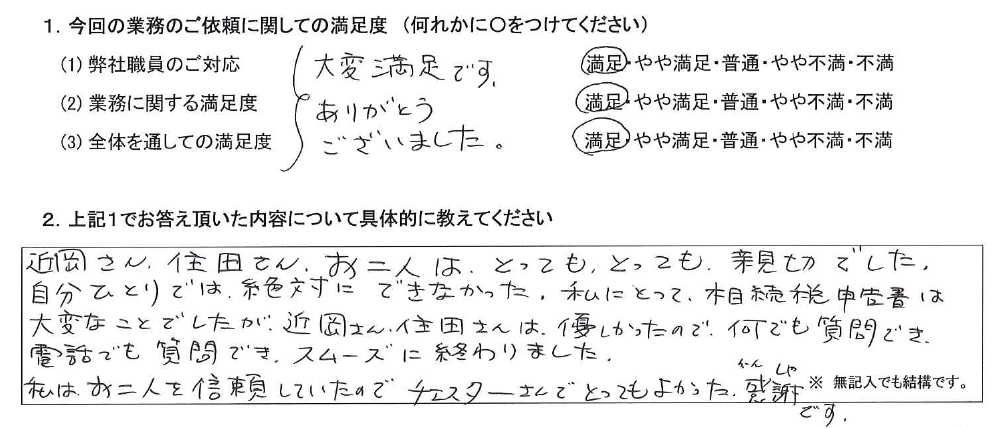 1. 今回の業務のご依頼に関しての満足度 (何れかに〇をつけてください)
(1) 弊社職員のご対応 大変満足です。 満足・やや満足・普通・やや不満・不満
(2) 業務に関する満足度 ありがとう 満足・やや満足・普通・やや不満・不満
(3) 全体を通しての満足度 ございました。 満足・やや満足・普通・やや不満・不満
2. 上記1でお答え頂いた内容について具体的に教えてください
近岡さん、住田さん、お二人は、とっても、とっても、親切でした。
自分ひとりでは、絶対にできなかった。私にとって、相続税申告書は
大変なことでしたが、近岡さん、住田さんは、優しかったので、何でも質問でき、
電話でも質問でき、スムーズに終わりました。
私は、お二人を信頼していたのでチェスターさんでとってもよかった。感謝
かんしゃ
です。
※ 無記入でも結構です。